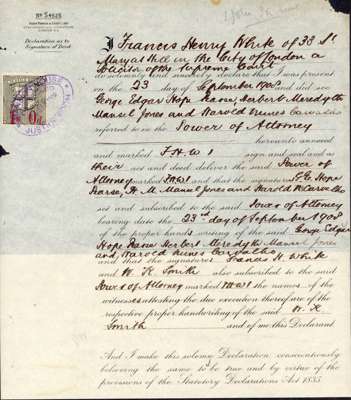 No 54625
Declaration as to
Signature of Deed
I Francis Henry White of 33 St
Mary at Hill in the City of London a
Solicitor of the Supreme Court
do solemnly and sincerely declare that I was present
on the 23 day of September 1908 and did see
George Edgar Hope Pearse, Herbert Meredyth
Mansel Jones and Harold Nunes Carvalho
referred to in the Power of Attorney
hereunto annexed
and marked F.H.W 1 sign and seal and as
their act and deed deliver the said Power of
Attorney marked and that the signatures G E Hope
Pearse, H. M. Mansel Jones and Harold N Carvalho
set and subscribed to the said Power of Attorney
bearing date the 23rd day of September 1908
of the proper hands writing of the said George Edgar
Hope Pearse Herbert Meredyth Mansel Jones
and Harold Nunes Carvalho
and that the signatures Francis H. White
and W. R. Smith also subscribed to the said
Power of Attorney marked the names of the
witnesses attesting the due execution thereof are of the
respective proper handwriting of the said W. R
Smith and of me this Declarant
And I make this solemn Declaration conscientiously
believing the same to be true and by virtue of the
provisions of the Statutory Declarations Act 1835